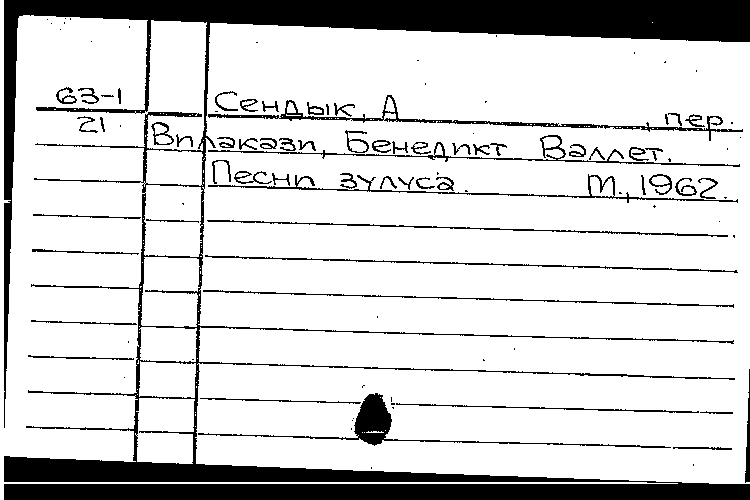 63-1 Сендык, А , пер.
21 Вилакази, Бенедикт Валлет.
Песни зулуса. М., 1962.